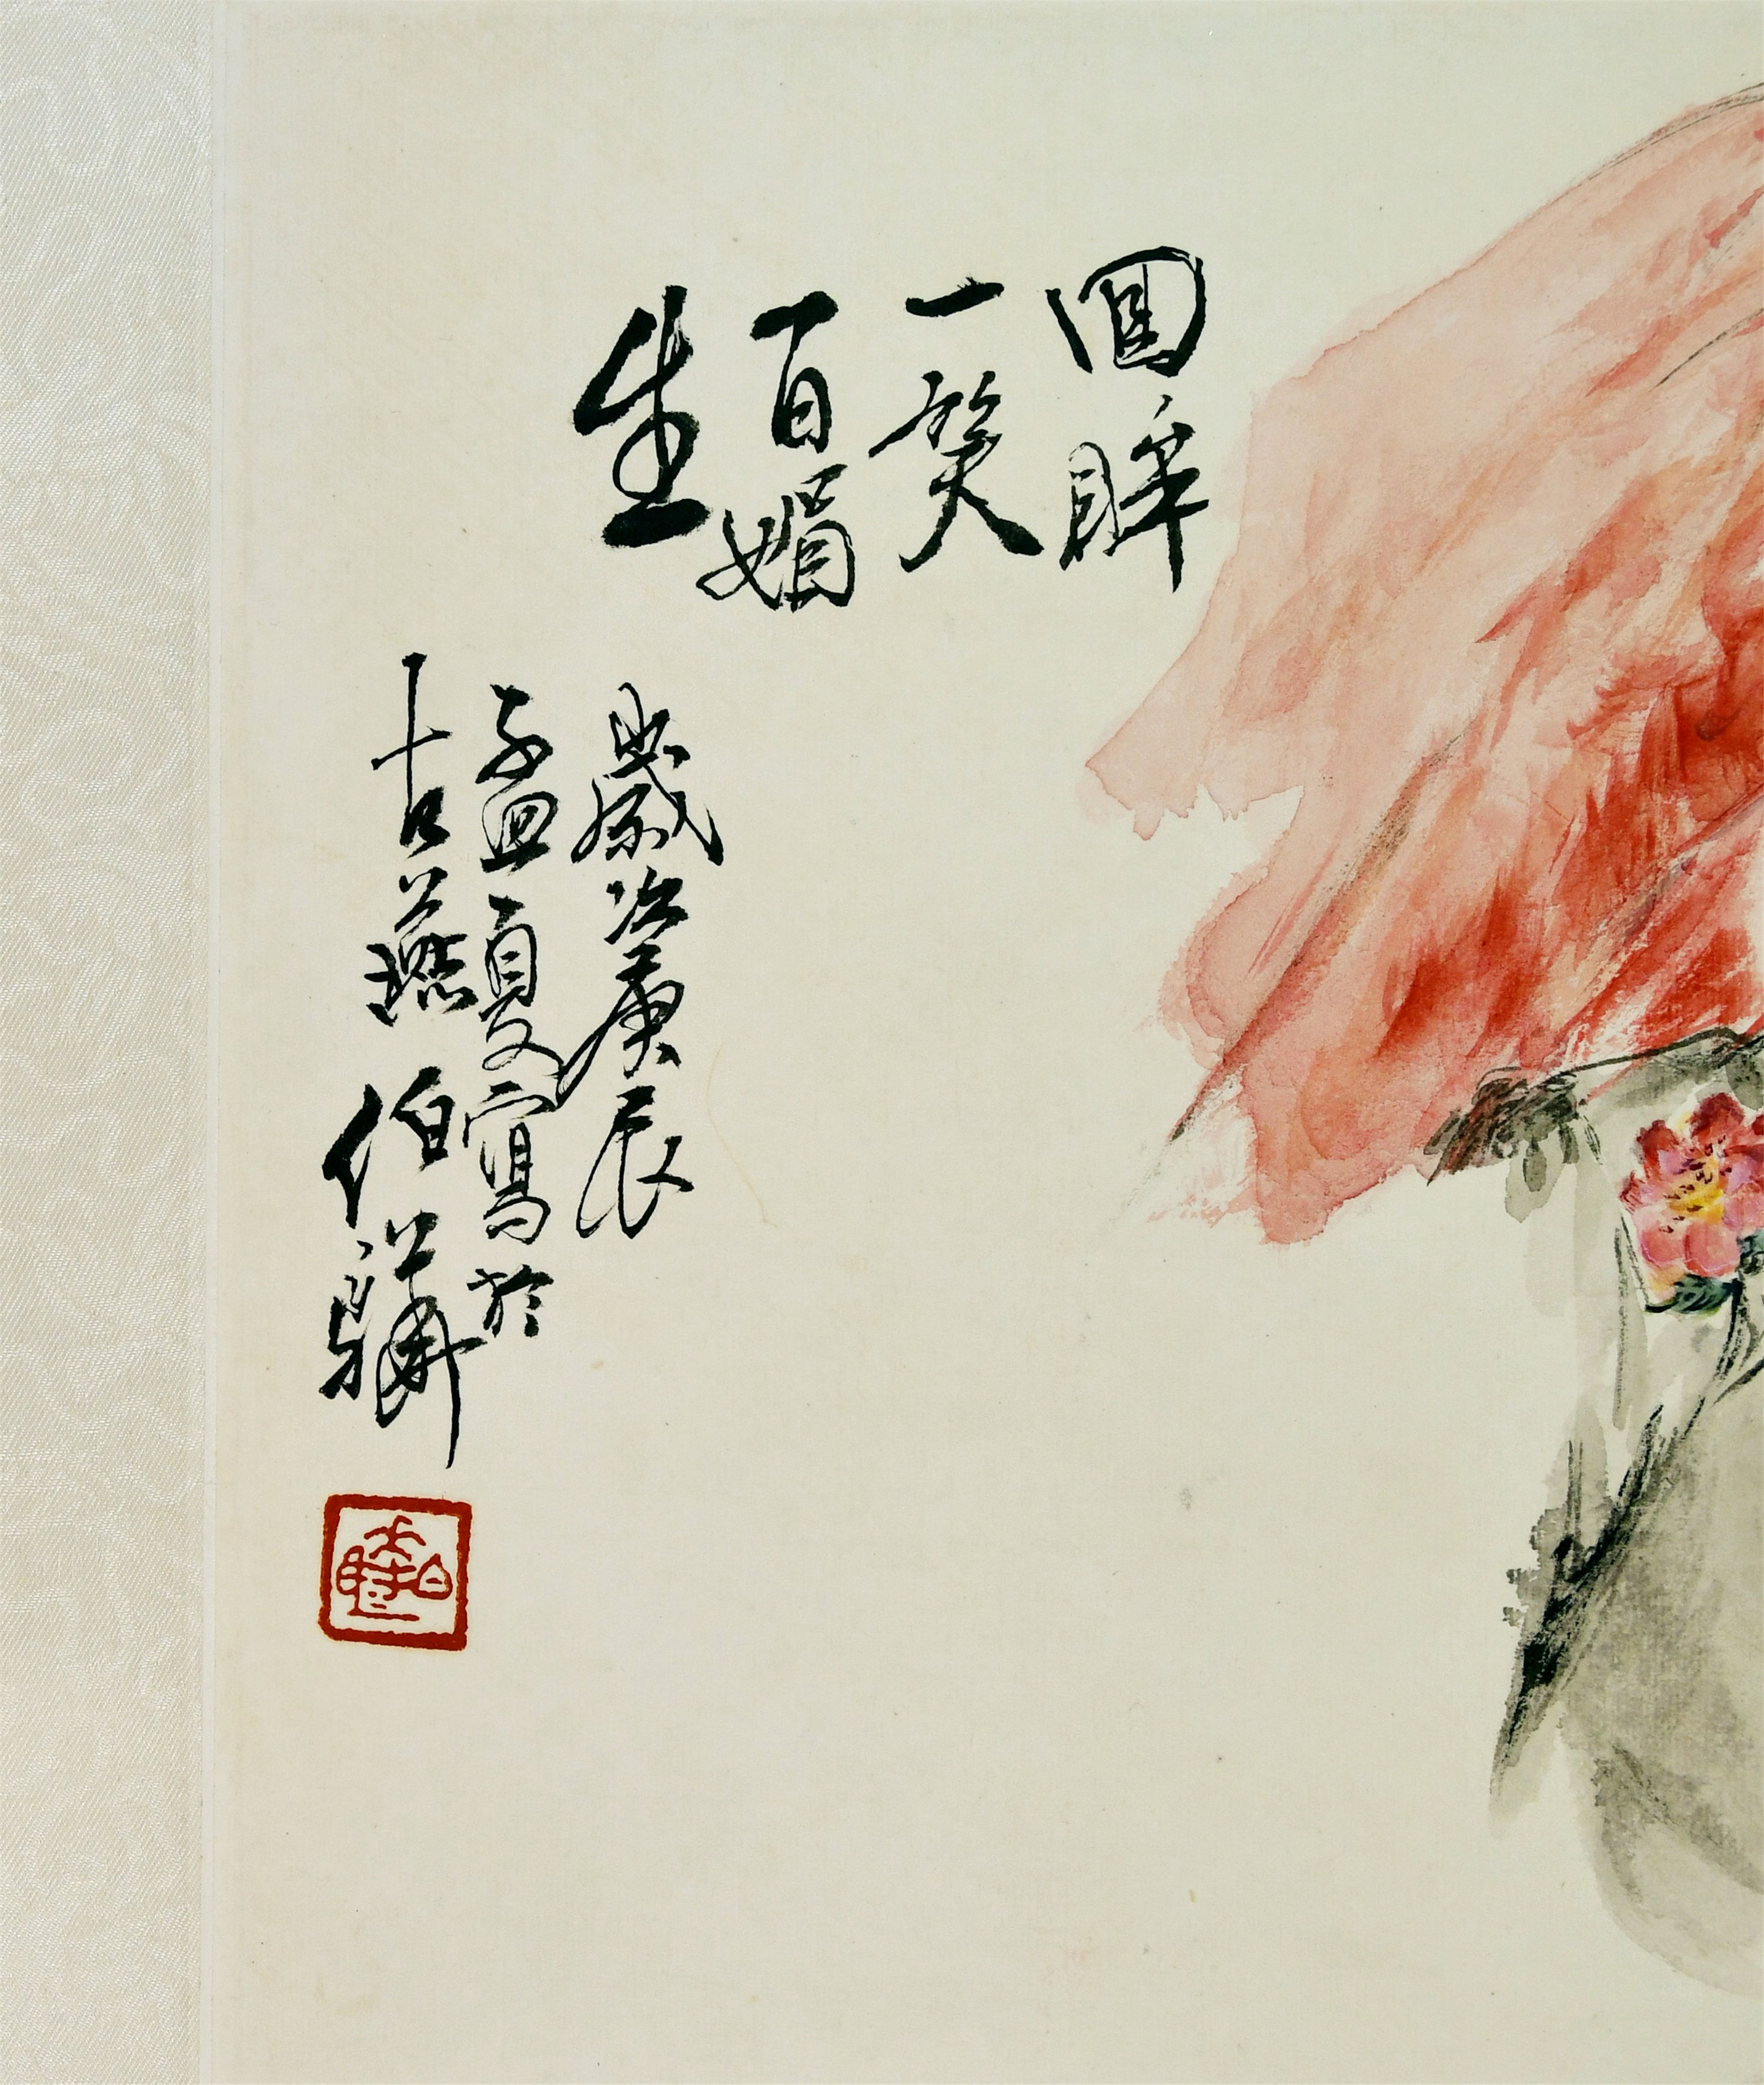 回眸
一笑
百媚
生
歲次庚辰
孟夏寫於
古燕伯驊